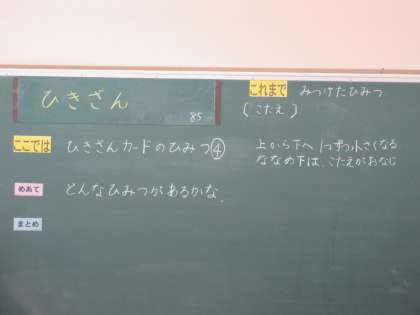 ひきざん
85
ここでは ひきざんカードのひみつ④
めあて どんなひみつがあるかな。
まとめ
これまで みつけたひみつ
(こたえ)
上から下へ 1つずつ小さくなる
ななめ下は、こたえがおなじ